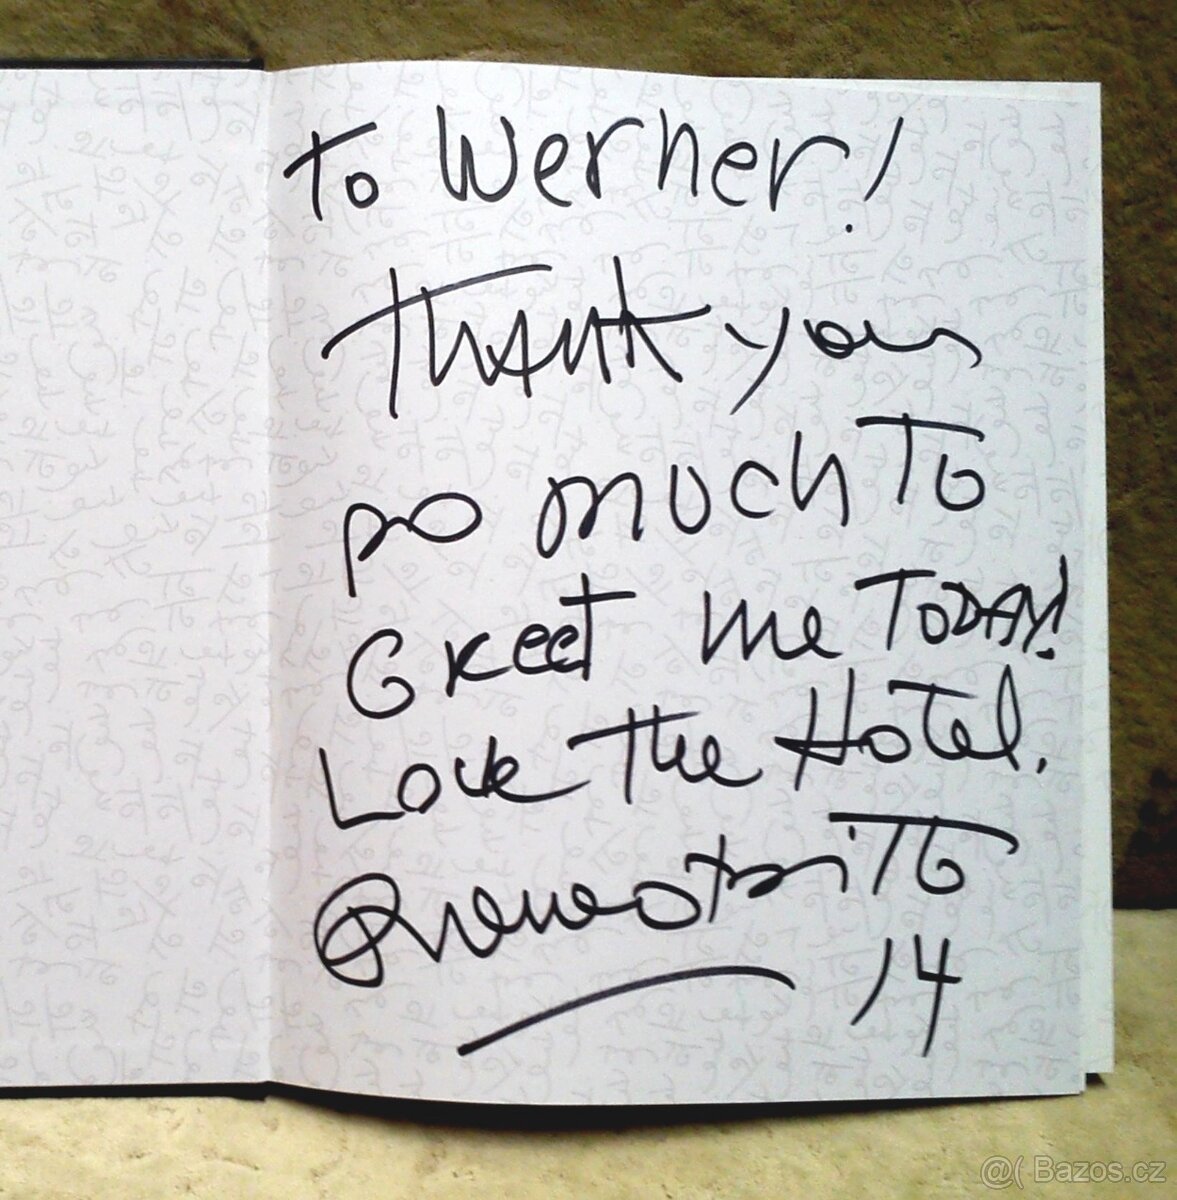 To Werner!
Thank you
so much To
Greet me TODAY!
Love The Hotel.
14
@( Bazos.cz